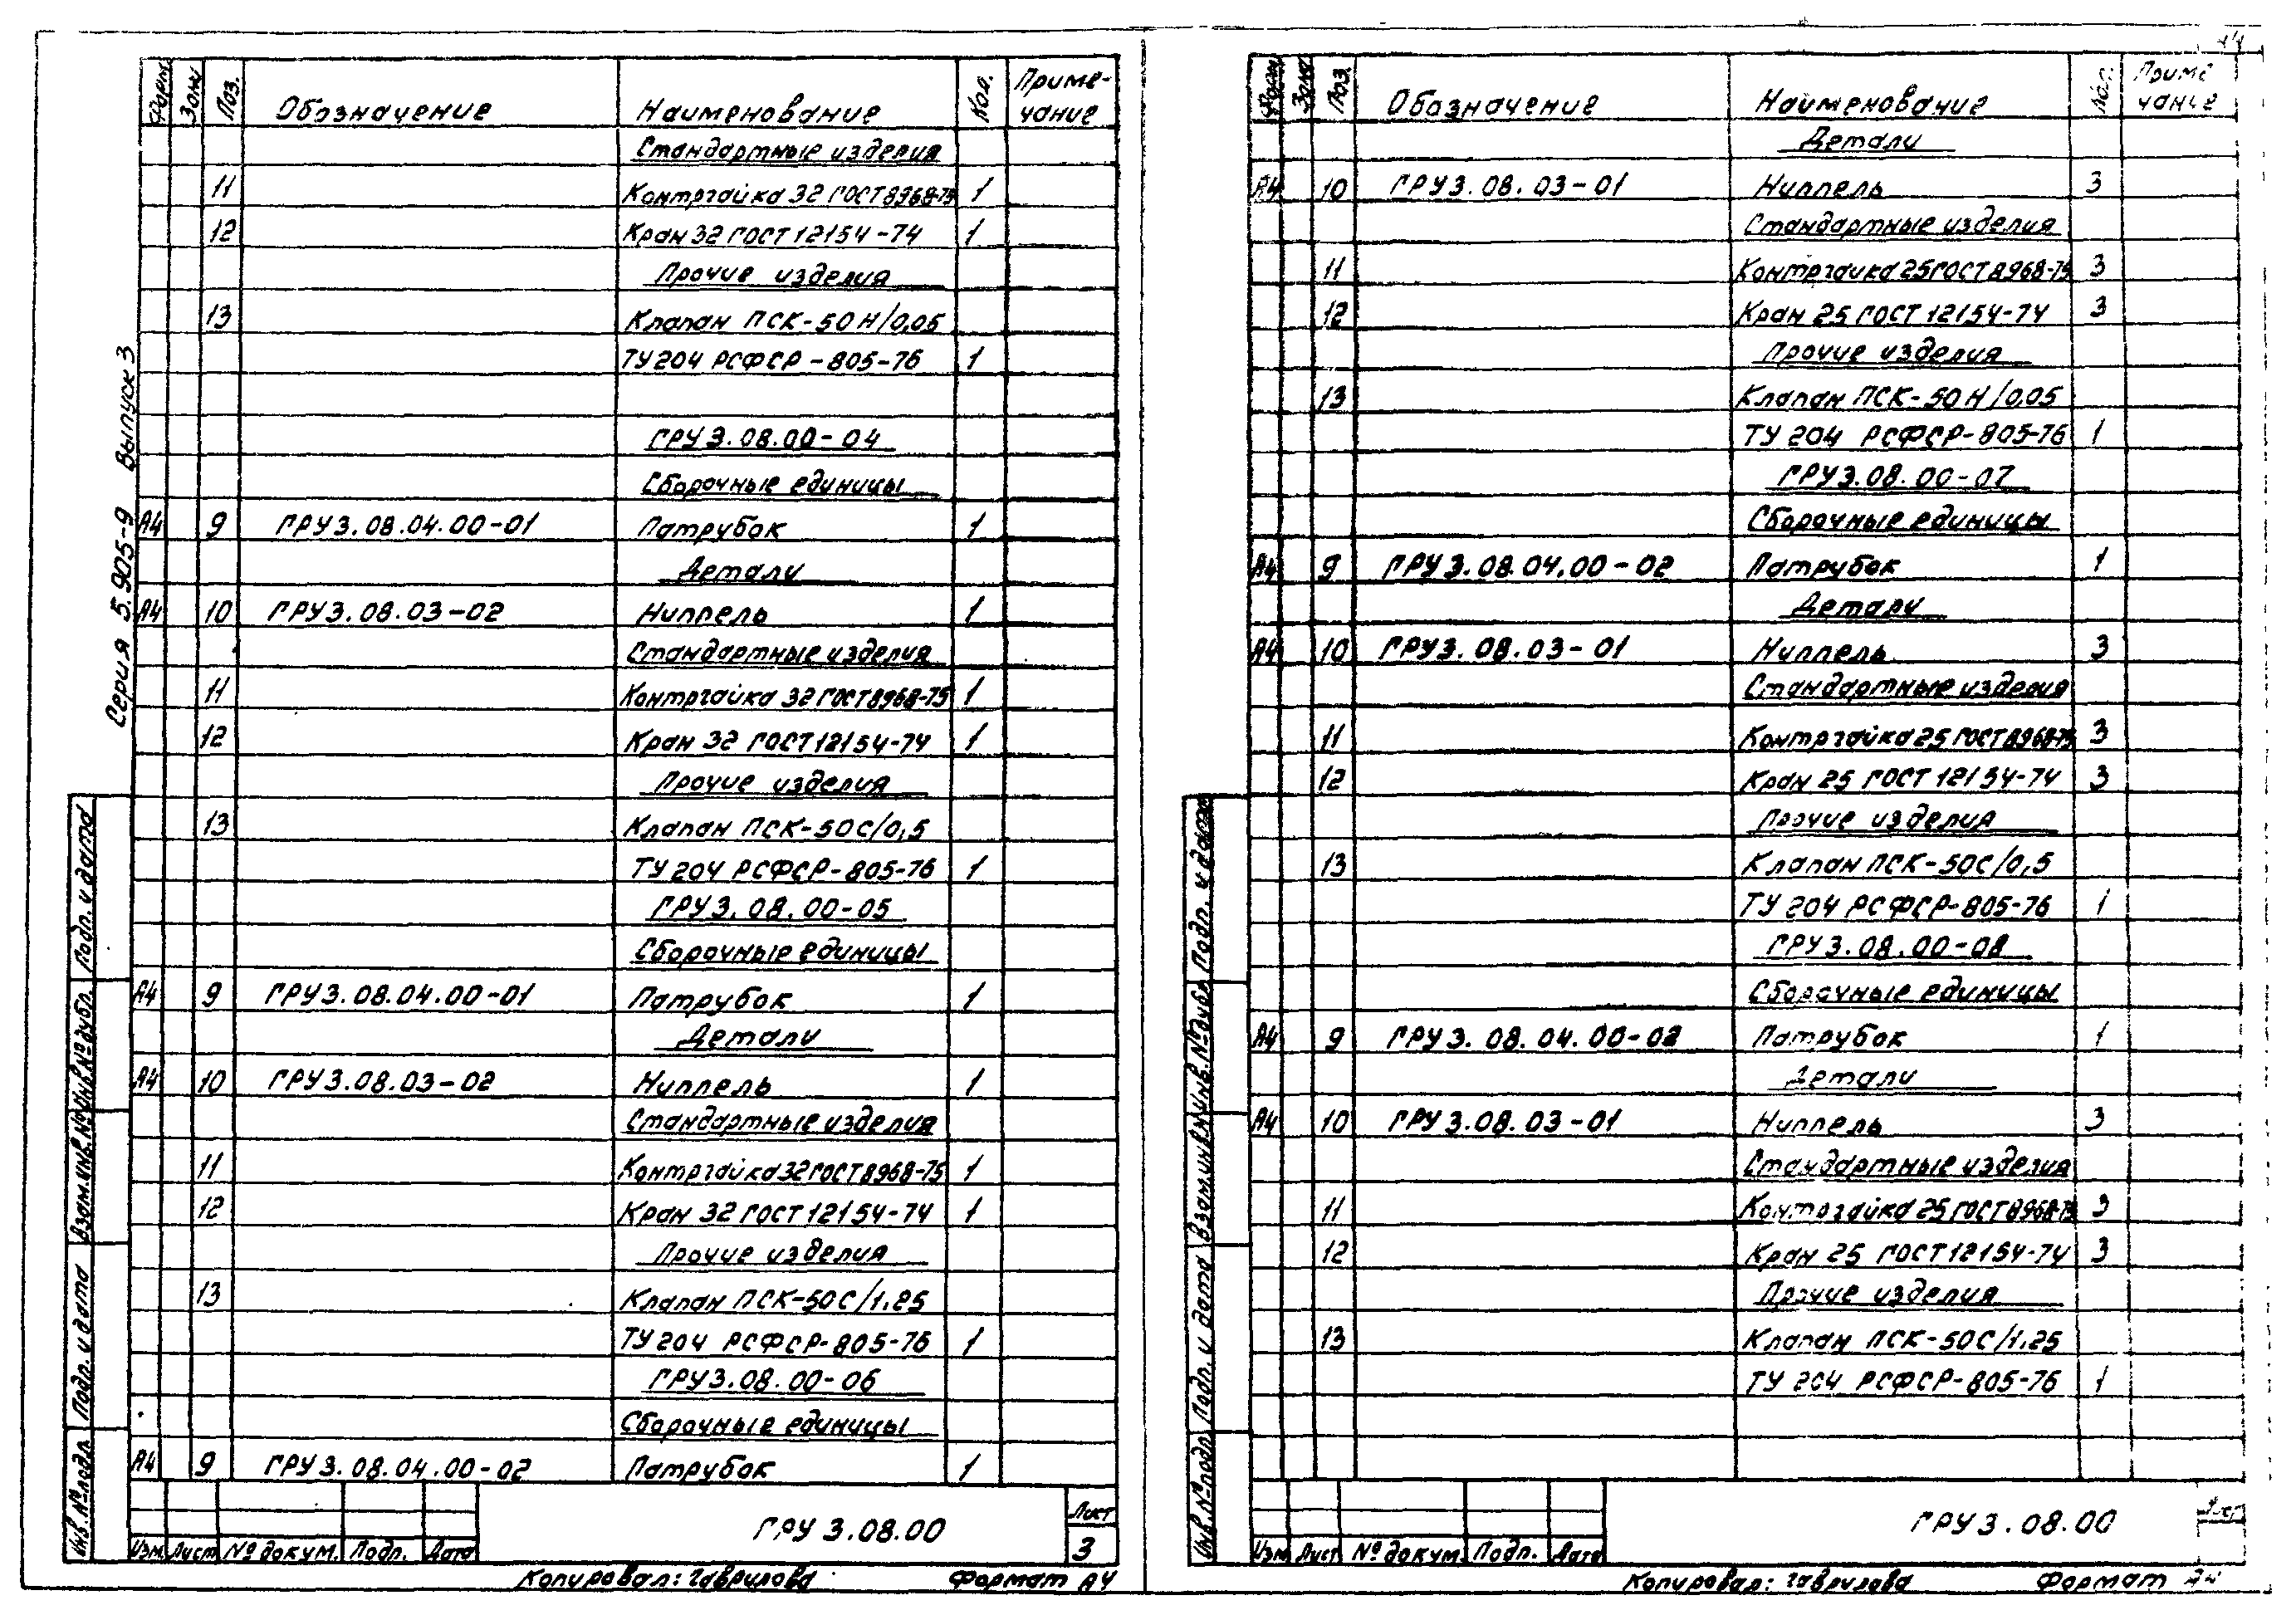 Серия 5.905-9 Выпуск 3
Форм. Зон Поз. Обозначение Наименование Кол. Приме-
чание
Стандартные изделия
11 Контргайка 32 ГОСТ 8968-75 1
12 Кран 32 ГОСТ 12154-74 1
Прочие изделия
13 Клапан ПСК-50Н/0,05
ТУ 204 РСФСР-805-76 1
ГРУ 3.08.00-04
Сборочные единицы
А4 9 ГРУ 3.08.04.00-01 Патрубок 1
Детали
А4 10 ГРУ 3.08.03-02 Ниппель 1
Стандартные изделия
11 Контргайка 32 ГОСТ 8968-75 1
12 Кран 32 ГОСТ 12154-74 1
Прочие изделия
13 Клапан ПСК-50С/0,5
ТУ 204 РСФСР-805-76 1
ГРУ 3.08.00-05
Сборочные единицы
А4 9 ГРУ 3.08.04.00-01 Патрубок 1
Детали
А4 10 ГРУ 3.08.03-02 Ниппель 1
Стандартные изделия
11 Контргайка 32 ГОСТ 8968-75 1
12 Кран 32 ГОСТ 12154-74 1
Прочие изделия
13 Клапан ПСК-50С/1.25
ТУ 204 РСФСР-805-76 1
ГРУ 3.08.00-06
Сборочные единицы
А4 9 ГРУ 3.08.04.00-02 Патрубок 1
Подп. и дата
Инв.№дубл.
Взам.инв.№
Подп. и дата
Инв.№подл
Изм Лист № докум. Подп. Дата
ГРУ 3.08.00
Лист
3
Копировал: Гаврилова Формат А4
Форм Зона Поз. Обозначение Наименование Кол. Приме
чание
Детали
А4 10 ГРУ 3.08.03-01 Ниппель 3
Стандартные изделия
11 Контргайка 25 ГОСТ 8968-75 3
12 Кран 25 ГОСТ 12154-74 3
Прочие изделия
13 Клапан ПСК-50Н/0.05
ТУ 204 РСФСР-805-76 1
ГРУ 3.08.00-07
Сборочные единицы
А4 9 ГРУ 3.08.04.00-02 Патрубок 1
Детали
А4 10 ГРУ 3.08.03-01 Ниппель 3
Стандартные изделия
11 Контргайка 25 ГОСТ 8968-75 3
12 Кран 25 ГОСТ 12154-74 3
Прочие изделия
13 Клапан ПСК-50С/0,5
ТУ 204 РСФСР-805-76 1
ГРУ 3.08.00-08
Сборочные единицы
А4 9 ГРУ 3.08.04.00-02 Патрубок 1
Детали
А4 10 ГРУ 3.08.03-01 Ниппель 3
Стандартные изделия
11 Контргайка 25 ГОСТ 8968-75 3
12 Кран 25 ГОСТ 12154-74 3
Прочие изделия
13 Клапан ПСК-50С/1.25
ТУ 204 РСФСР-805-76 1
Подп. и дата
Инв.№дубл
Взам.инв.№
Подп. и дата
Инв.№подл
Изм Лист № докум. Подп. Дата
ГРУ 3.08.00
Лист
Копировал: Гаврилова Формат А4